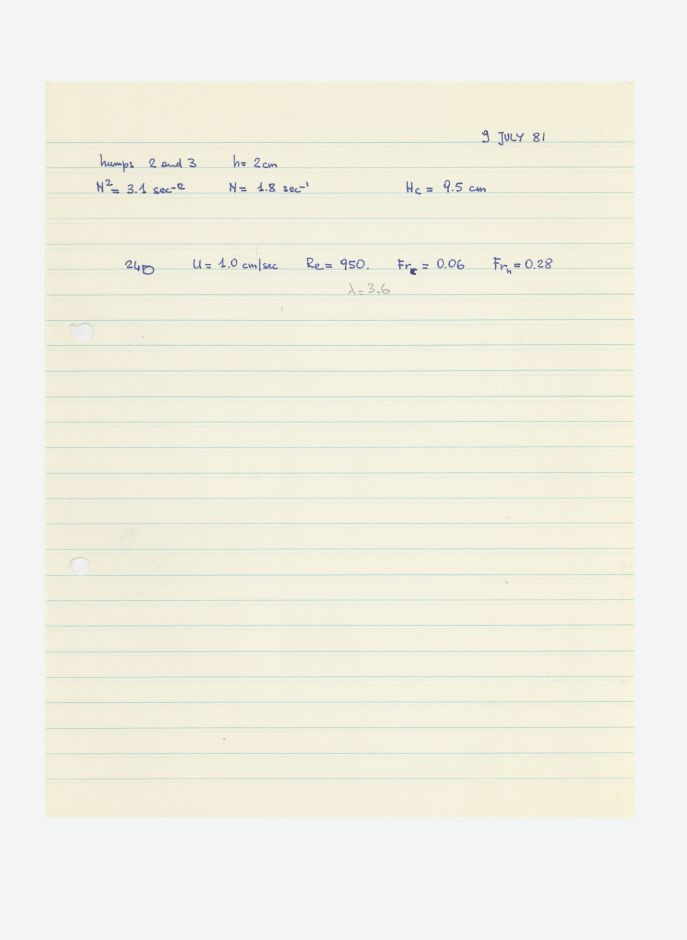 9 JULY 81
humps 2 and 3 h= 2cm
N²= 3.1 sec⁻² N= 1.8 sec⁻¹ Hc = 9.5 cm
24D U= 1.0 cm/sec Re= 950. Frc = 0.06 Frh = 0.28
λ=3.6